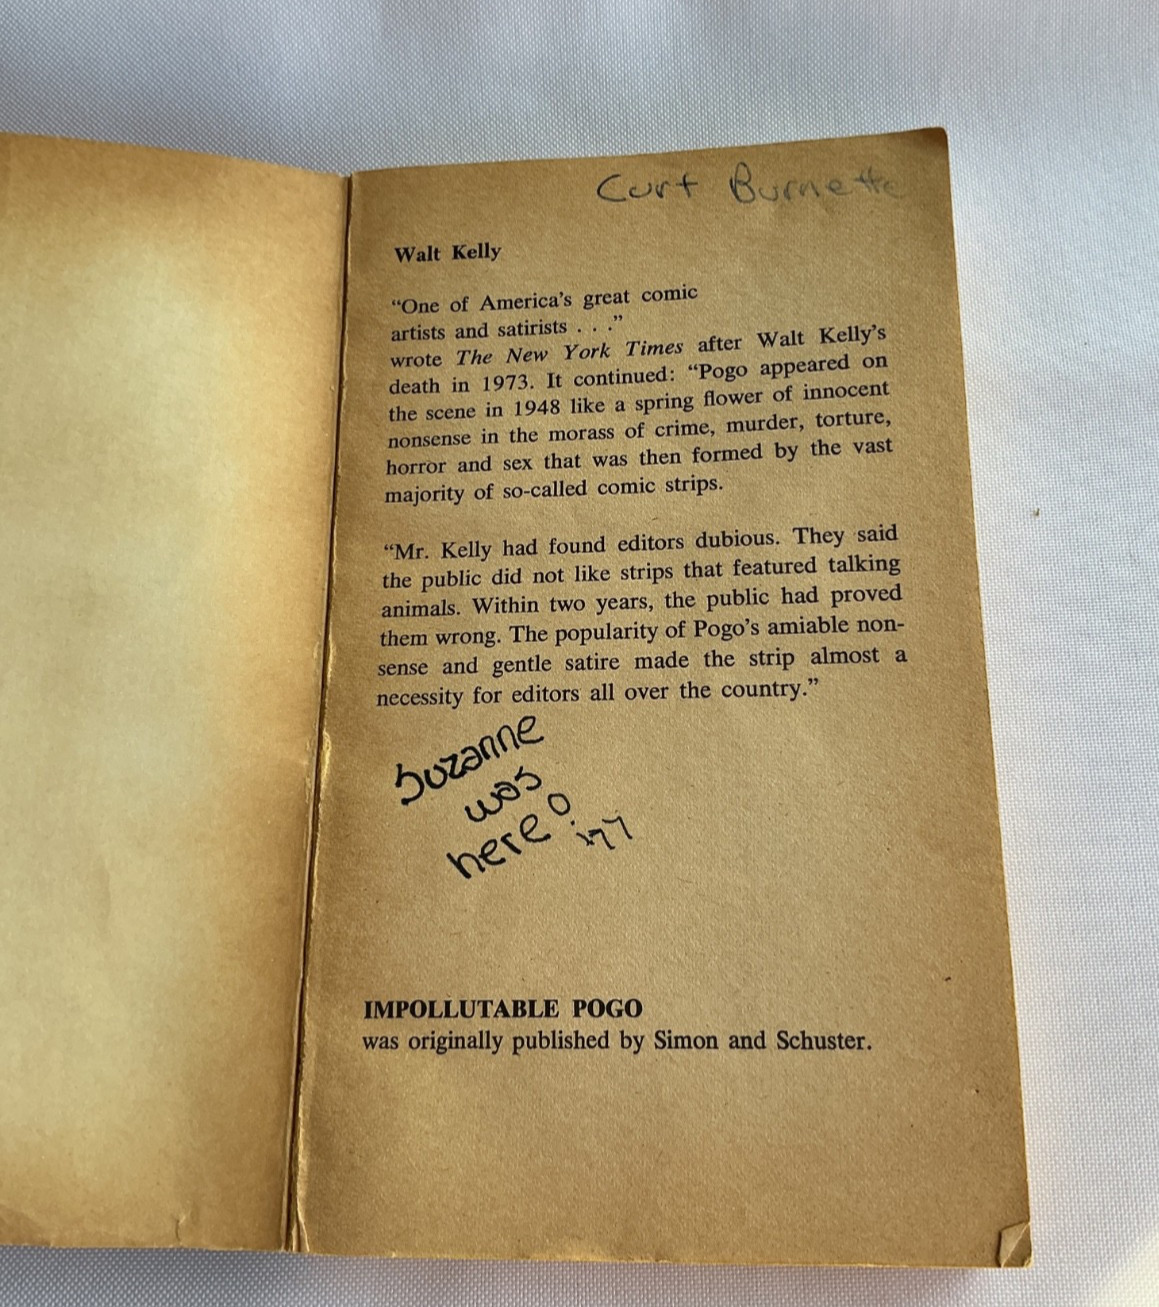 Curt Burnette
Walt Kelly
“One of America’s great comic
artists and satirists . . .”
wrote The New York Times after Walt Kelly’s
death in 1973. It continued: “Pogo appeared on
the scene in 1948 like a spring flower of innocent
nonsense in the morass of crime, murder, torture,
horror and sex that was then formed by the vast
majority of so-called comic strips.
“Mr. Kelly had found editors dubious. They said
the public did not like strips that featured talking
animals. Within two years, the public had proved
them wrong. The popularity of Pogo’s amiable non-
sense and gentle satire made the strip almost a
necessity for editors all over the country.”
Suzanne
was
here!
'77
IMPOLLUTABLE POGO
was originally published by Simon and Schuster.